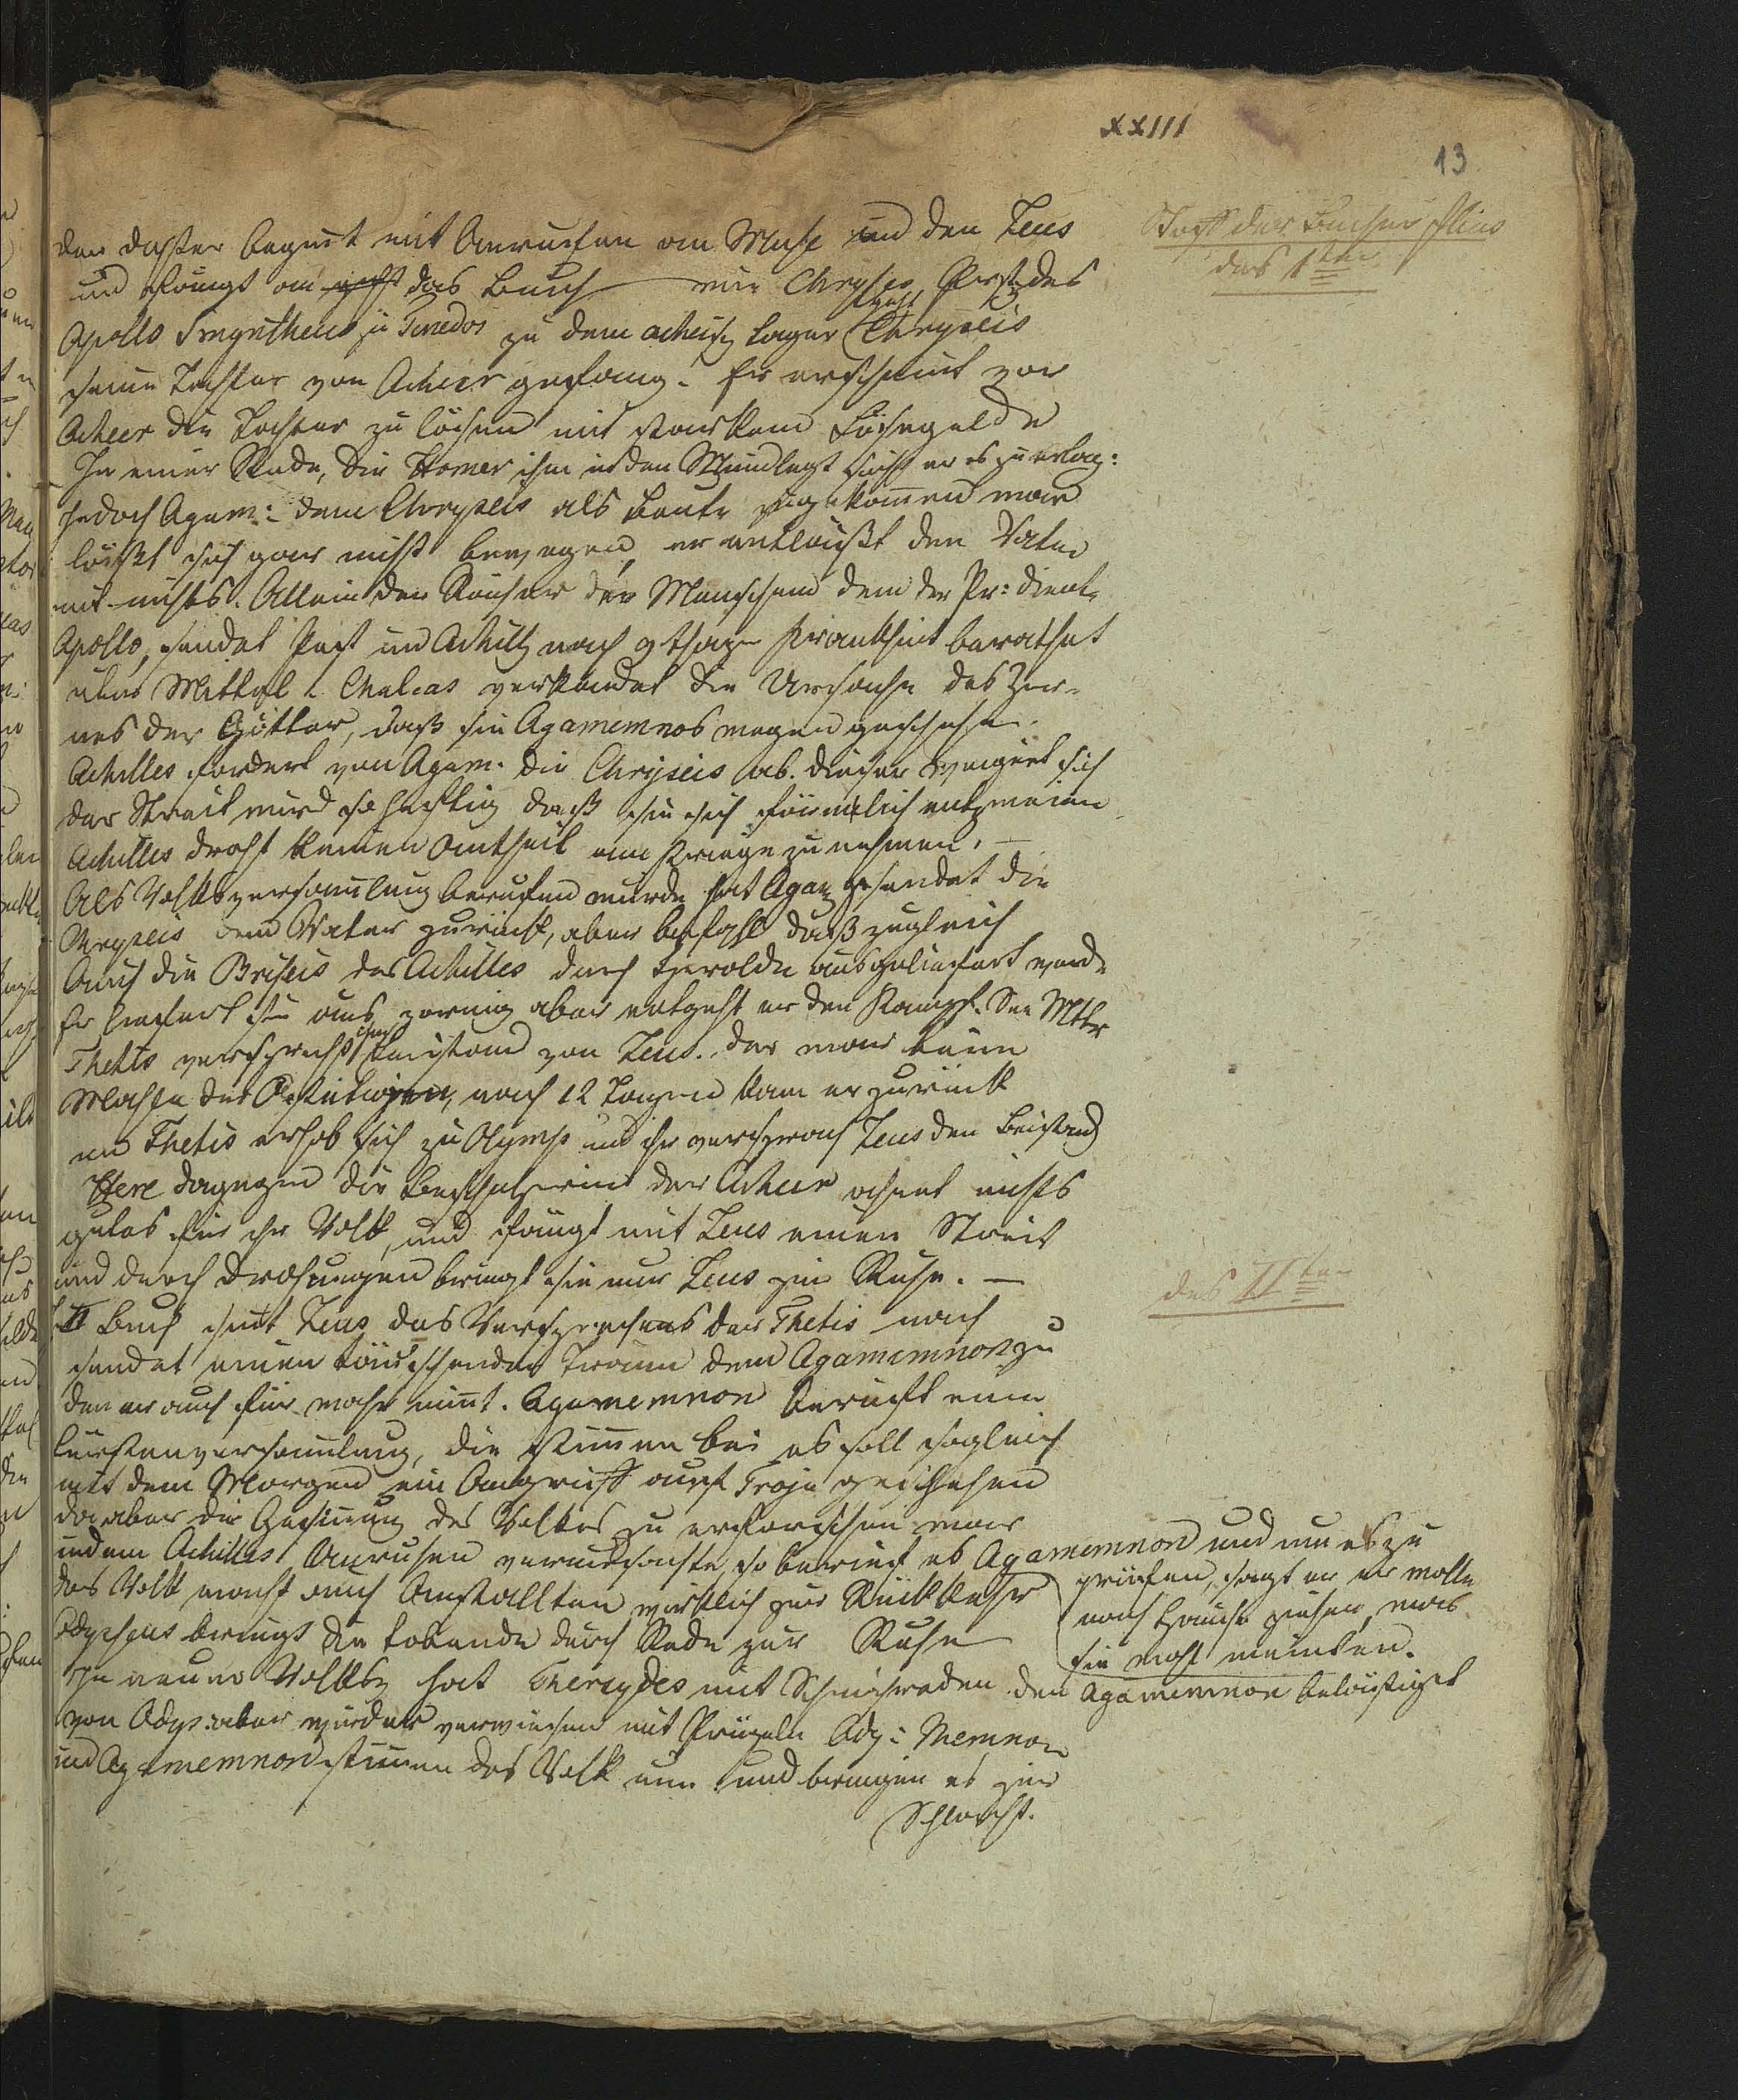 XXIII
13
Stoff der Bücher Ilias
des 1ten
der Dichter beginnt mit Anrufen an Muse und den Zeus
und fängt an das Buch wie Chryses Prst. des
Apollo Smyntheus zu Tenedos zu dem acheisch Lager Chryseis
seine Tochter von Acheer gefang. Er erscheint vor
Acheer die Tochter zu lösen mit starkem Lösegelde
In einer Rede, die Homer ihm in den Mund legt sucht er es zu erlang:
jedoch Agam: dem Chryseis als Beute zugekomen war
läßt sich gar nicht bewegen, er entläßt den Vater
mit nichts. Allein der Rächer der Menschen dem der Pr: dient
Apollo, sendet Pest und Achill nach 9 Tage Krankheit berathet
über Mittel u. Chalcas verkündet die Ursache des Zor-
nes der Götter, daß sie Agamemnos wegen geschehe.
Achilles fordert von Agam. die Chryseis ab. dieser weigert sich
der Streit wird so heftig daß sie sich förmlich entzweien
Achilles droht keinen Antheil am Kriege zu nehmen. —
Als Volksversamlung berufen wurde hat Agam gesendet die
Chryseis dem Vater zurück, aber befahl daß zugleich
Auch die Briseis des Achilles durch Herolde ausgeliefert werde
Er liefert sie aus zornig aber entgeht er den Kampf. Die Mttr
Thetis verspricht ihm Beistand von Zeus. der war beim
Mahle der Aethiopen, nach 12 Tagen kam er zurück
und Thetis erhob sich zu Olymp und ihr versprach Zeus den Beistand
Here dagegen die Beschützerin der Acheer ahnet nichts
gutes für ihr Volk, und fängt mit Zeus einen Streit
und durch Drohungen bringt sie nur Zeus zur Ruhe. —
des IIten
II Buch Zeus das Versprechens der Thetis nach
sendet einen täuschenden Traum dem Agamemnon zu
den er auch für wahr nimt. Agamemnon beruft eine
Fürstenversamlung, die stimmen bei es soll sogleich
mit dem Morgen ein Angriff auf Troja geschehen
da aber die Gesinung des Volkes zu erforschen war
indem Achilles Unruhen verursachte, so berief es Agamemnon und um es zu
prüfen, sagt er er wolle
nach Hause ziehen, was
sie wohl meinten.
das Volk macht auch Anstallten wirklich zur Rückkehr
Odysseus bringt die tobende durch Rede zur Ruhe
In neuer Volks hat Thersydes mit Schmähreden den Agamemnon belästiget
von Odys: aber wurde er verwiesen mit Prügeln Ody: Memnon
und Agamemnon stimmen das Volk um und bringen es zur
Schlacht.